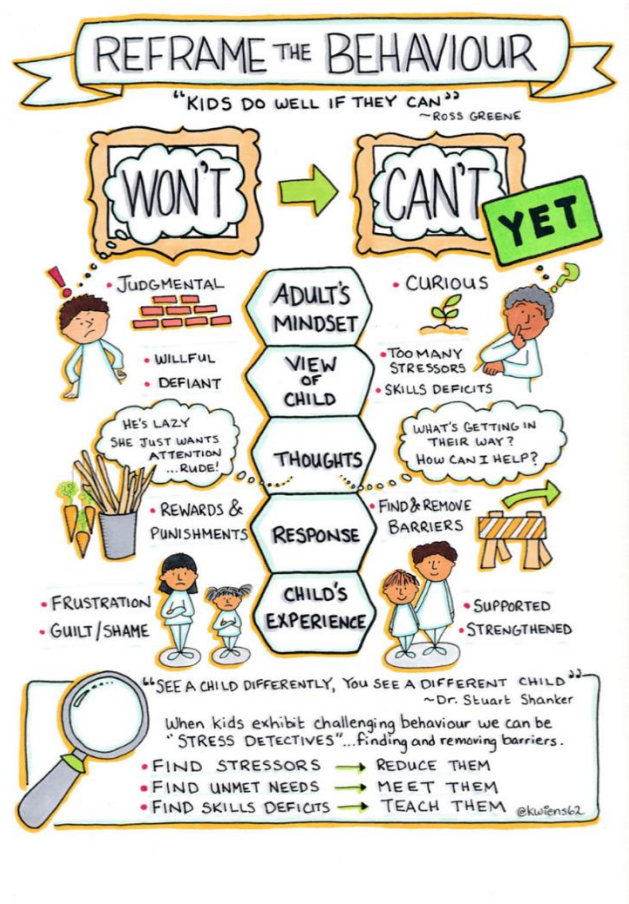 REFRAME THE BEHAVIOUR
"KIDS DO WELL IF THEY CAN"
~ROSS GREENE
WON'T
CAN'T
YET
• JUDGMENTAL
ADULT'S
MINDSET
• CURIOUS
• WILLFUL
• DEFIANT
VIEW
OF
CHILD
• TOO MANY
STRESSORS
• SKILLS DEFICITS
HE'S LAZY
SHE JUST WANTS
ATTENTION
...RUDE!
THOUGHTS
WHAT'S GETTING IN
THEIR WAY?
HOW CAN I HELP?
• REWARDS &
PUNISHMENTS
RESPONSE
• FIND & REMOVE
BARRIERS
• FRUSTRATION
• GUILT/SHAME
CHILD'S
EXPERIENCE
• SUPPORTED
• STRENGTHENED
"SEE A CHILD DIFFERENTLY, YOU SEE A DIFFERENT CHILD"
~Dr. Stuart Shanker
When kids exhibit challenging behaviour we can be
"STRESS DETECTIVES"...finding and removing barriers.
• FIND STRESSORS → REDUCE THEM
• FIND UNMET NEEDS → MEET THEM
• FIND SKILLS DEFICITS → TEACH THEM
@kwiens62